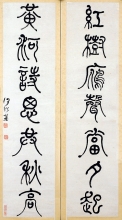 紅樹鴈聲當夕起
黃河詩思秋高